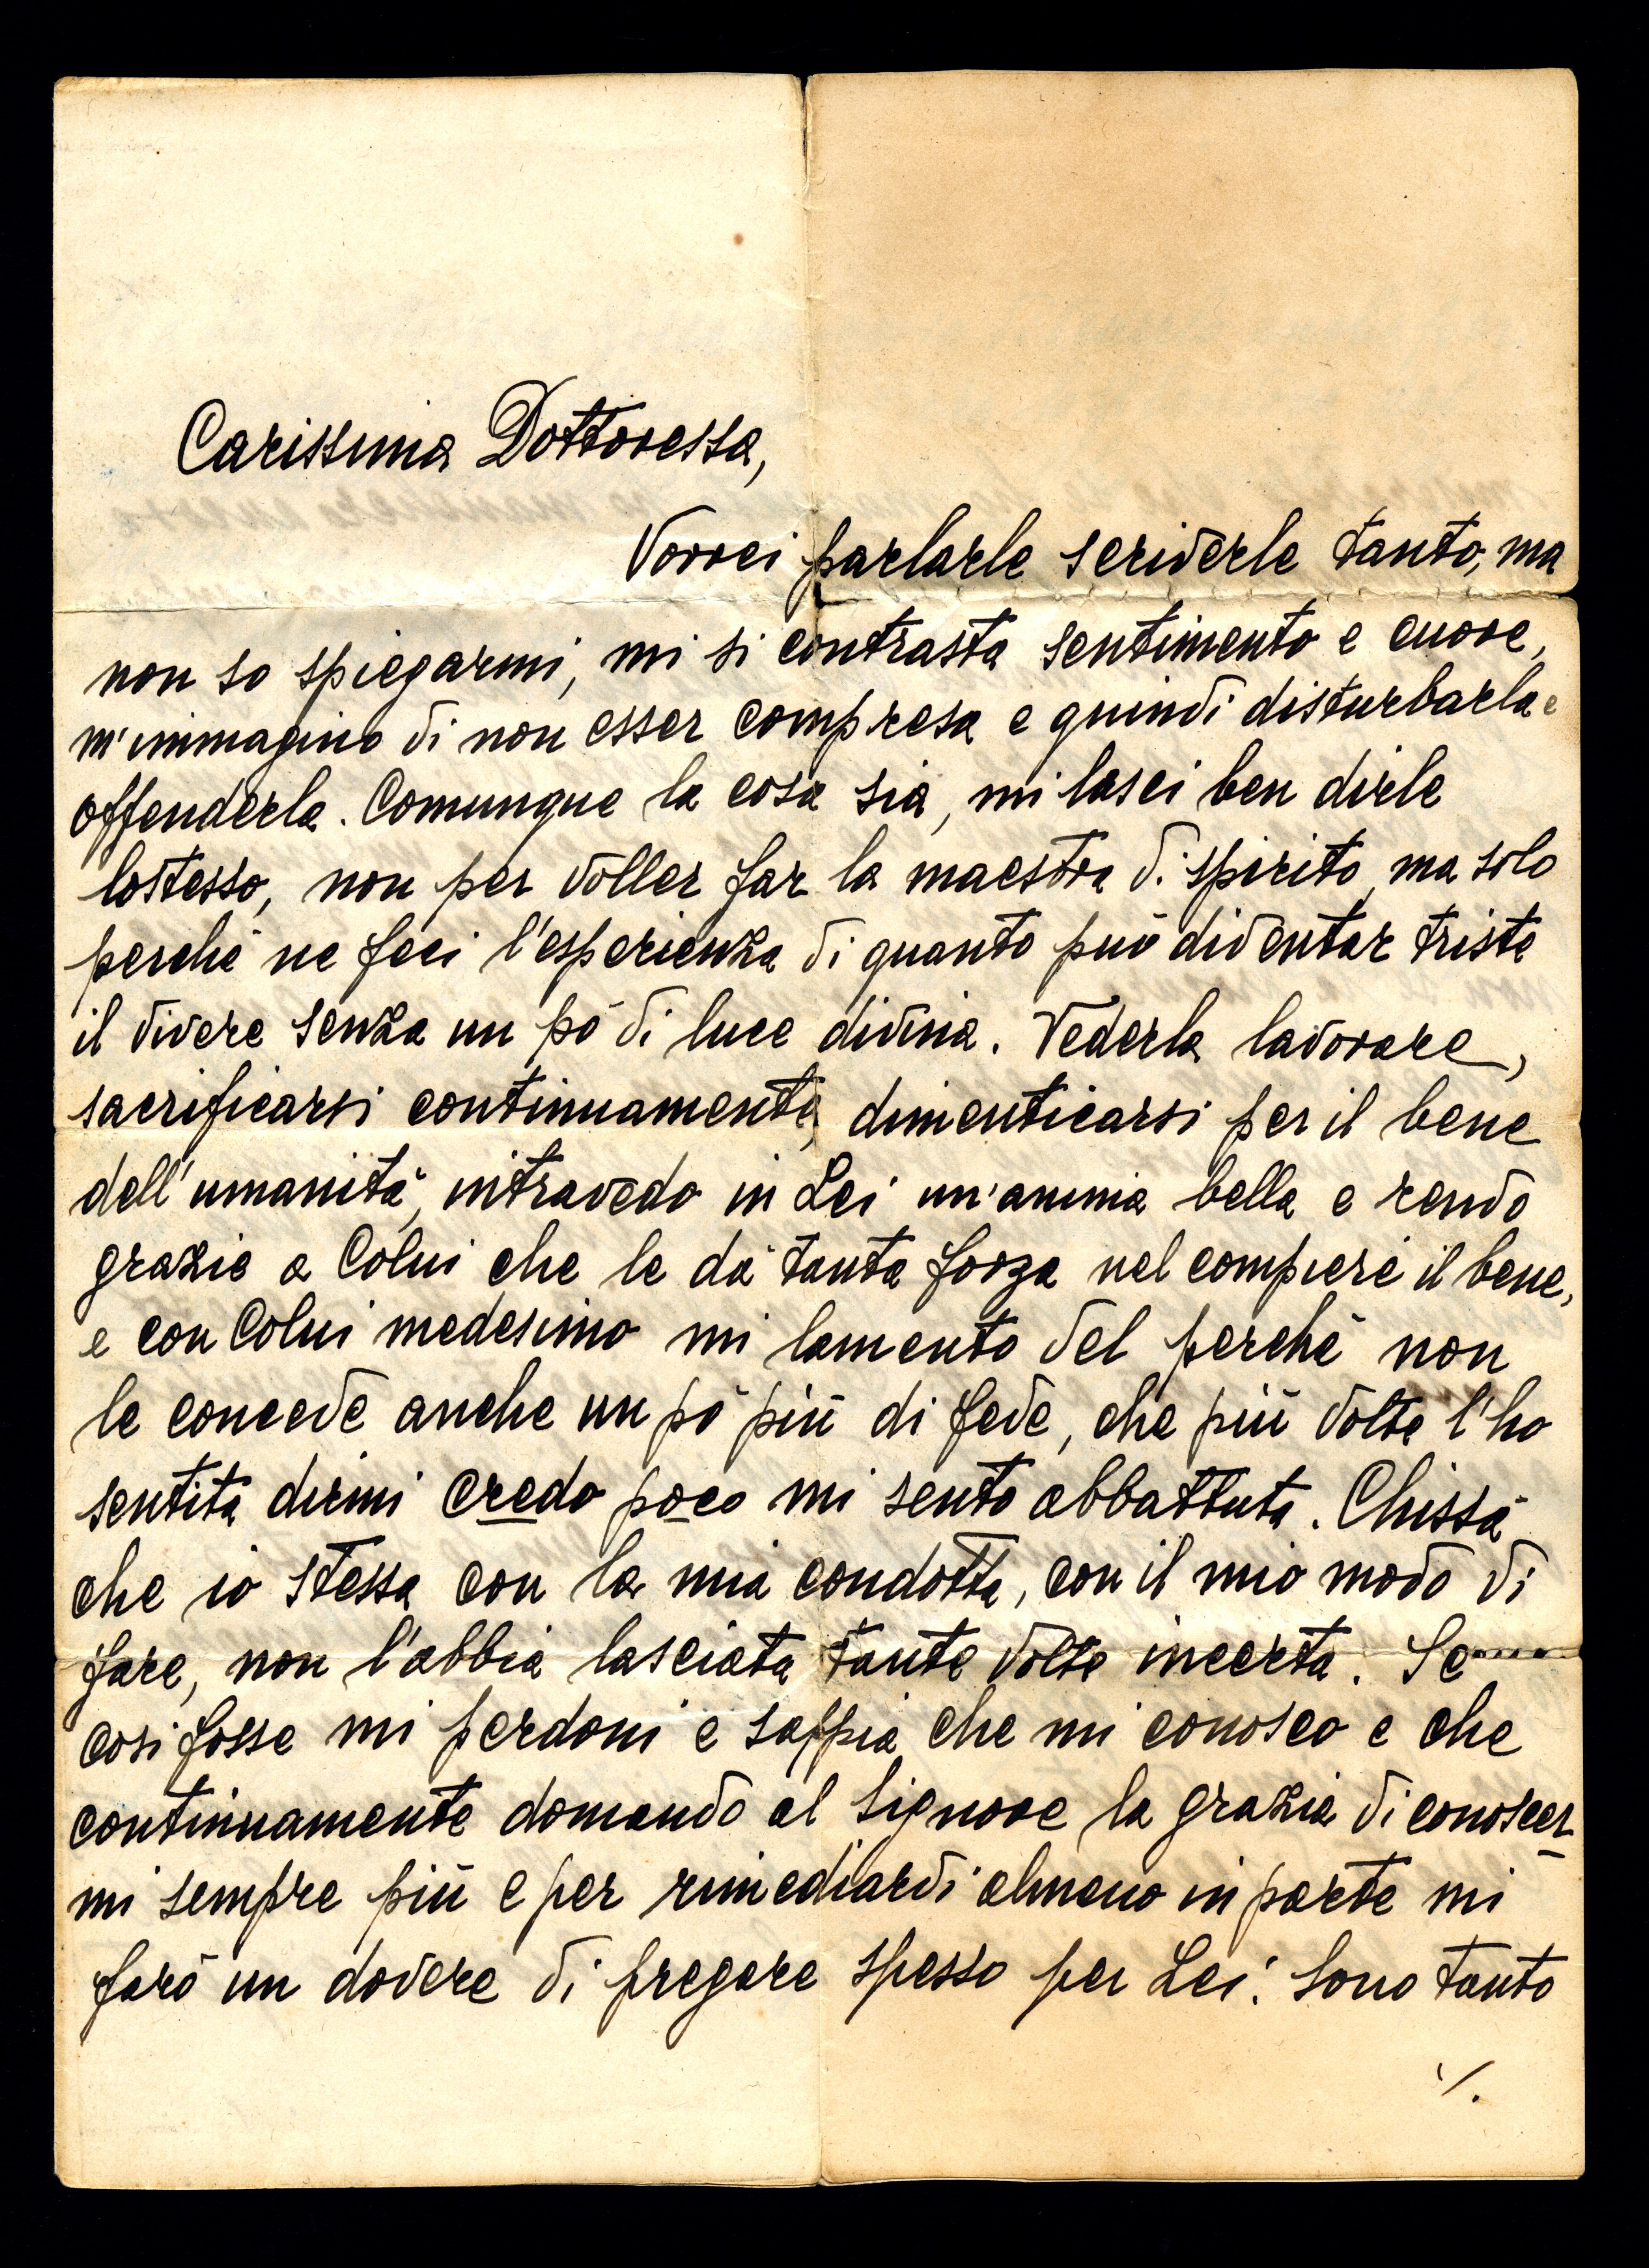 Carissima Dottoressa,
Vorrei parlarle scriverle tanto, ma
non so spiegarmi, mi si contrasta sentimento e cuore,
m'immagino di non esser compresa e quindi disturbarla e
offenderla. Comunque la cosa sia, mi lasci ben dirle
lostesso, non per voller far la maestra di spirito, ma solo
perchè ne feci l'esperienza di quanto può diventar triste
il vivere senza un pó di luce divina. Vederla lavorare,
sacrificarsi continuamente, dimenticarsi per il bene
dell'umanità, intravedo in Lei un'anima bella e rendo
grazie a Colui che le dà tanta forza nel compiere il bene,
e con Colui medesimo mi lamento del perchè non
le concede anche un pó più di fede, che più volte l'ho
sentita dirmi credo poco mi sento abbattuta. Chissà
che io stessa con la mia condotta, con il mio modo di
fare, non l'abbia lasciata tante volte incerta. Se....
cosi fosse mi perdoni e sappia che mi conosco e che
continuamente domando al Signore la grazia di conoscer_
mi sempre più e per rimediardi almeno in parte mi
farò un dovere di pregare spesso per Lei. Sono tanto
./.